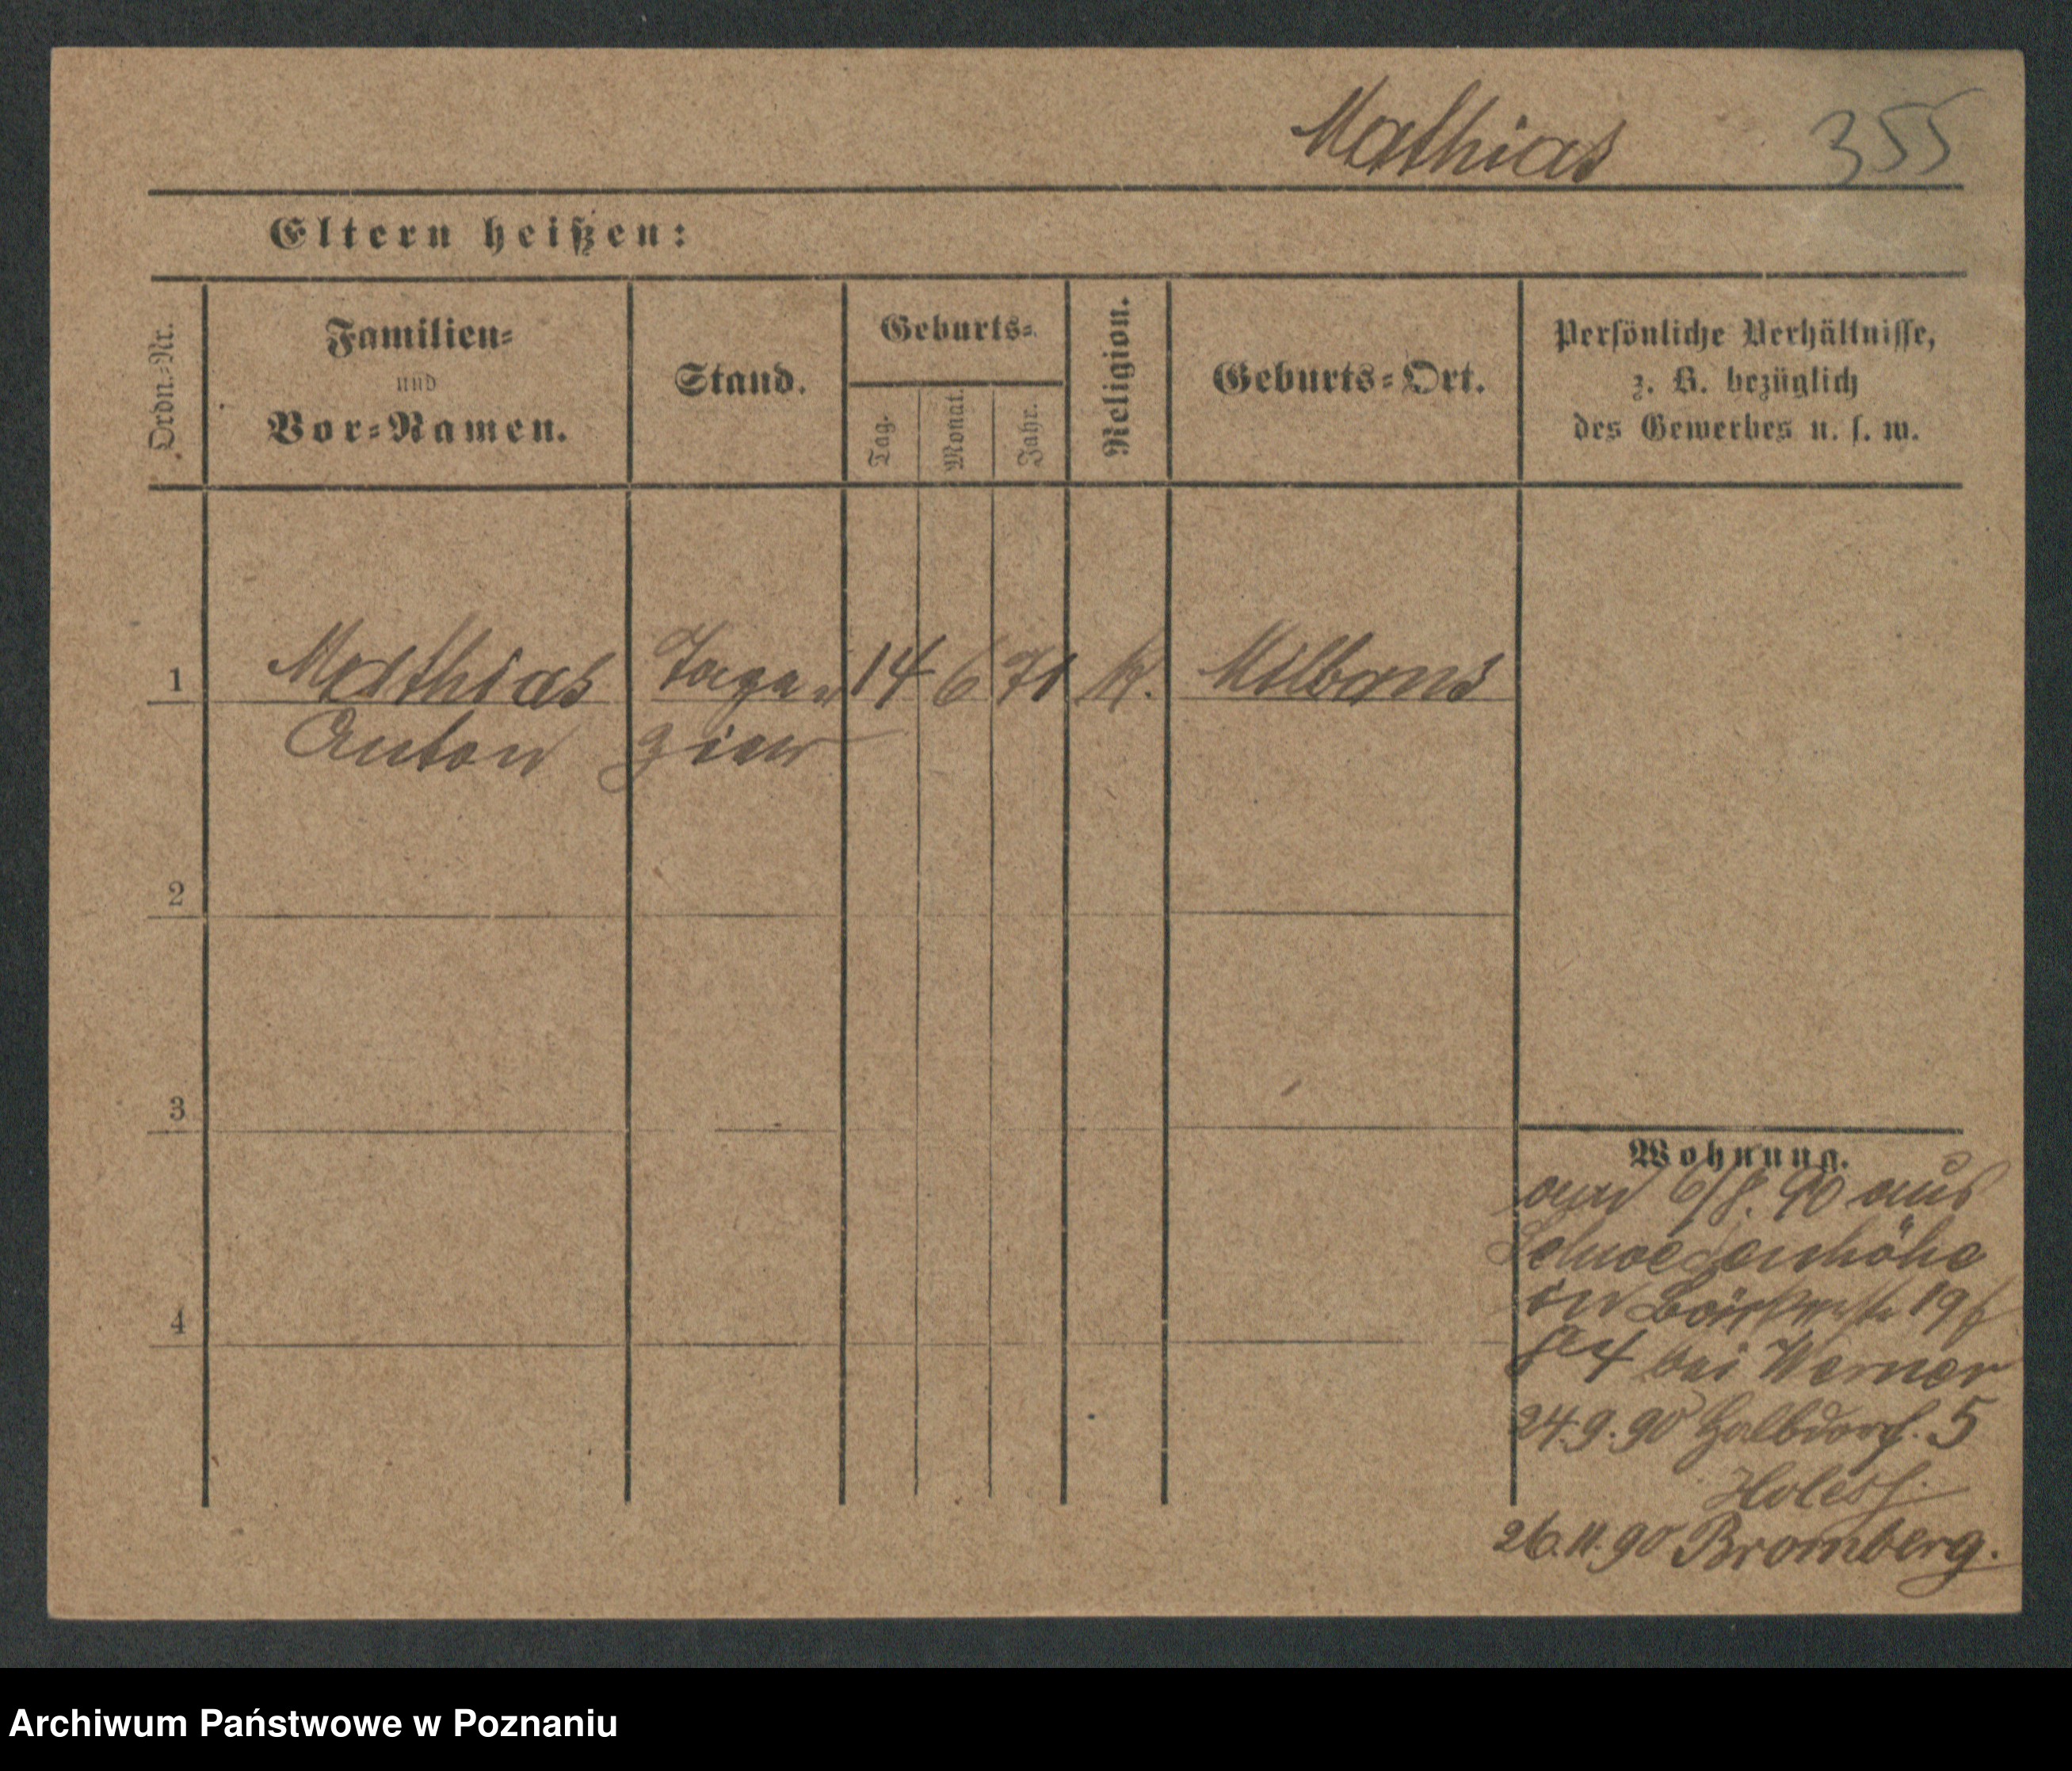 Mathias 355
Eltern heißen:
Ordn.-Nr.
Familien-
und
Vor-Namen.
Stand.
Geburts-
Tag.
Monat.
Jahr.
Religion.
Geburts-Ort.
Persönliche Verhältnisse,
z. B. bezüglich
des Gewerbes u. s. w.
1 Mathias 14 6 71 K.
Anton
2
3
4
Wohnung.
6/8. 90 aus
Schwedenhöhe
in 19
bei Werner
24.9.90 Halbdorf. 5
26.11.90 Bromberg.
Archiwum Państwowe w Poznaniu